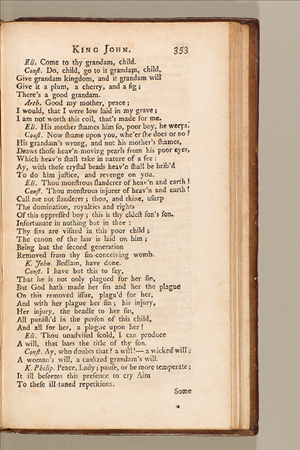 KING JOHN. 353
Eli. Come to thy grandam, child.
Const. Do, child, go to it grandam, child.
Give grandam kingdom, and it grandam will
Give it a plum, a cherry, and a fig;
There's a good grandam.
Arth. Good my mother, peace;
I would, that I were low laid in my grave;
I am not worth this coil, that's made for me.
Eli. His mother shames him so, poor boy, he weeps.
Const. Now shame upon you, whe'er she does or no!
His grandam's wrong, and not his mother's shames,
Draws those heav'n-moving pearls from his poor eyes,
Which heav'n shall take in nature of a fee:
Ay, with these crystal beads heav'n shall be brib'd
To do him justice, and revenge on you.
Eli. Thou monstrous slanderer of heav'n and earth!
Const. Thou monstrous injurer of heav'n and earth!
Call me not slanderer; thou, and thine, usurp
The domination, royalties and rights
Of this oppressed boy; this is thy eldest son's son.
Infortunate in nothing but in thee:
Thy sins are visited in this poor child;
The canon of the law is laid on him;
Being but the second generation
Removed from thy sin-conceiving womb.
K. John. Bedlam, have done.
Const. I have but this to say,
That he is not only plagued for her sin,
But God hath made her sin and her the plague
On this removed issue, plagu'd for her,
And with her plague her sin; his injury,
Her injury, the beadle to her sin,
All punish'd in the person of this child,
And all for her, a plague upon her!
Eli. Thou unadvised scold, I can produce
A will, that bars the title of thy son.
Const. Ay, who doubts that? a will!—a wicked will;
A woman's will, a cankred grandam's will.
K. Philip. Peace, Lady; pause, or be more temperate;
It ill beseems this presence to cry Aim
To these ill-tuned repetitions.
Some